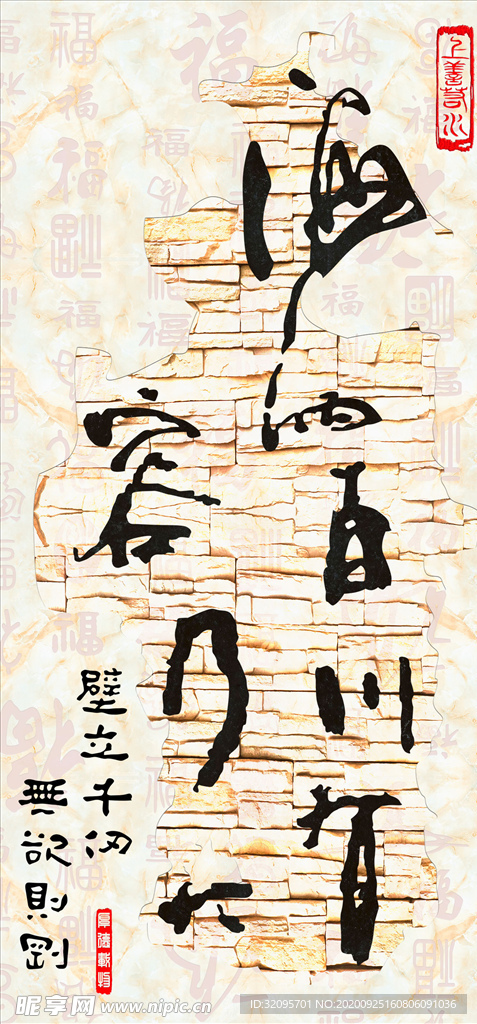 上善若水
海納百川有
容乃大
壁立千仞
無欲則剛
厚德載物
福
昵享网 www.nipic.cn
ID:32095701 NO:20200925160806091036